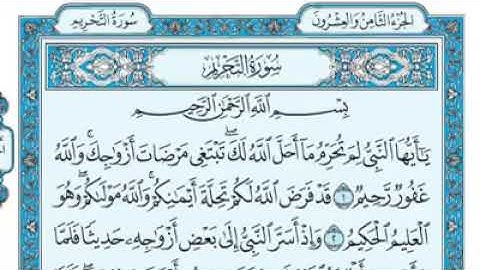 الجزء الثامن والعشرون
سورة التحريم
سُورَةُ التَّحْرِيمِ
بِسْمِ اللَّهِ الرَّحْمَٰنِ الرَّحِيمِ
يَا أَيُّهَا النَّبِيُّ لِمَ تُحَرِّمُ مَا أَحَلَّ اللَّهُ لَكَ ۖ تَبْتَغِي مَرْضَاتَ أَزْوَاجِكَ ۚ وَاللَّهُ
غَفُورٌ رَحِيمٌ ١ قَدْ فَرَضَ اللَّهُ لَكُمْ تَحِلَّةَ أَيْمَانِكُمْ ۚ وَاللَّهُ مَوْلَاكُمْ ۖ وَهُوَ
الْعَلِيمُ الْحَكِيمُ ٢ وَإِذْ أَسَرَّ النَّبِيُّ إِلَىٰ بَعْضِ أَزْوَاجِهِ حَدِيثًا فَلَمَّا